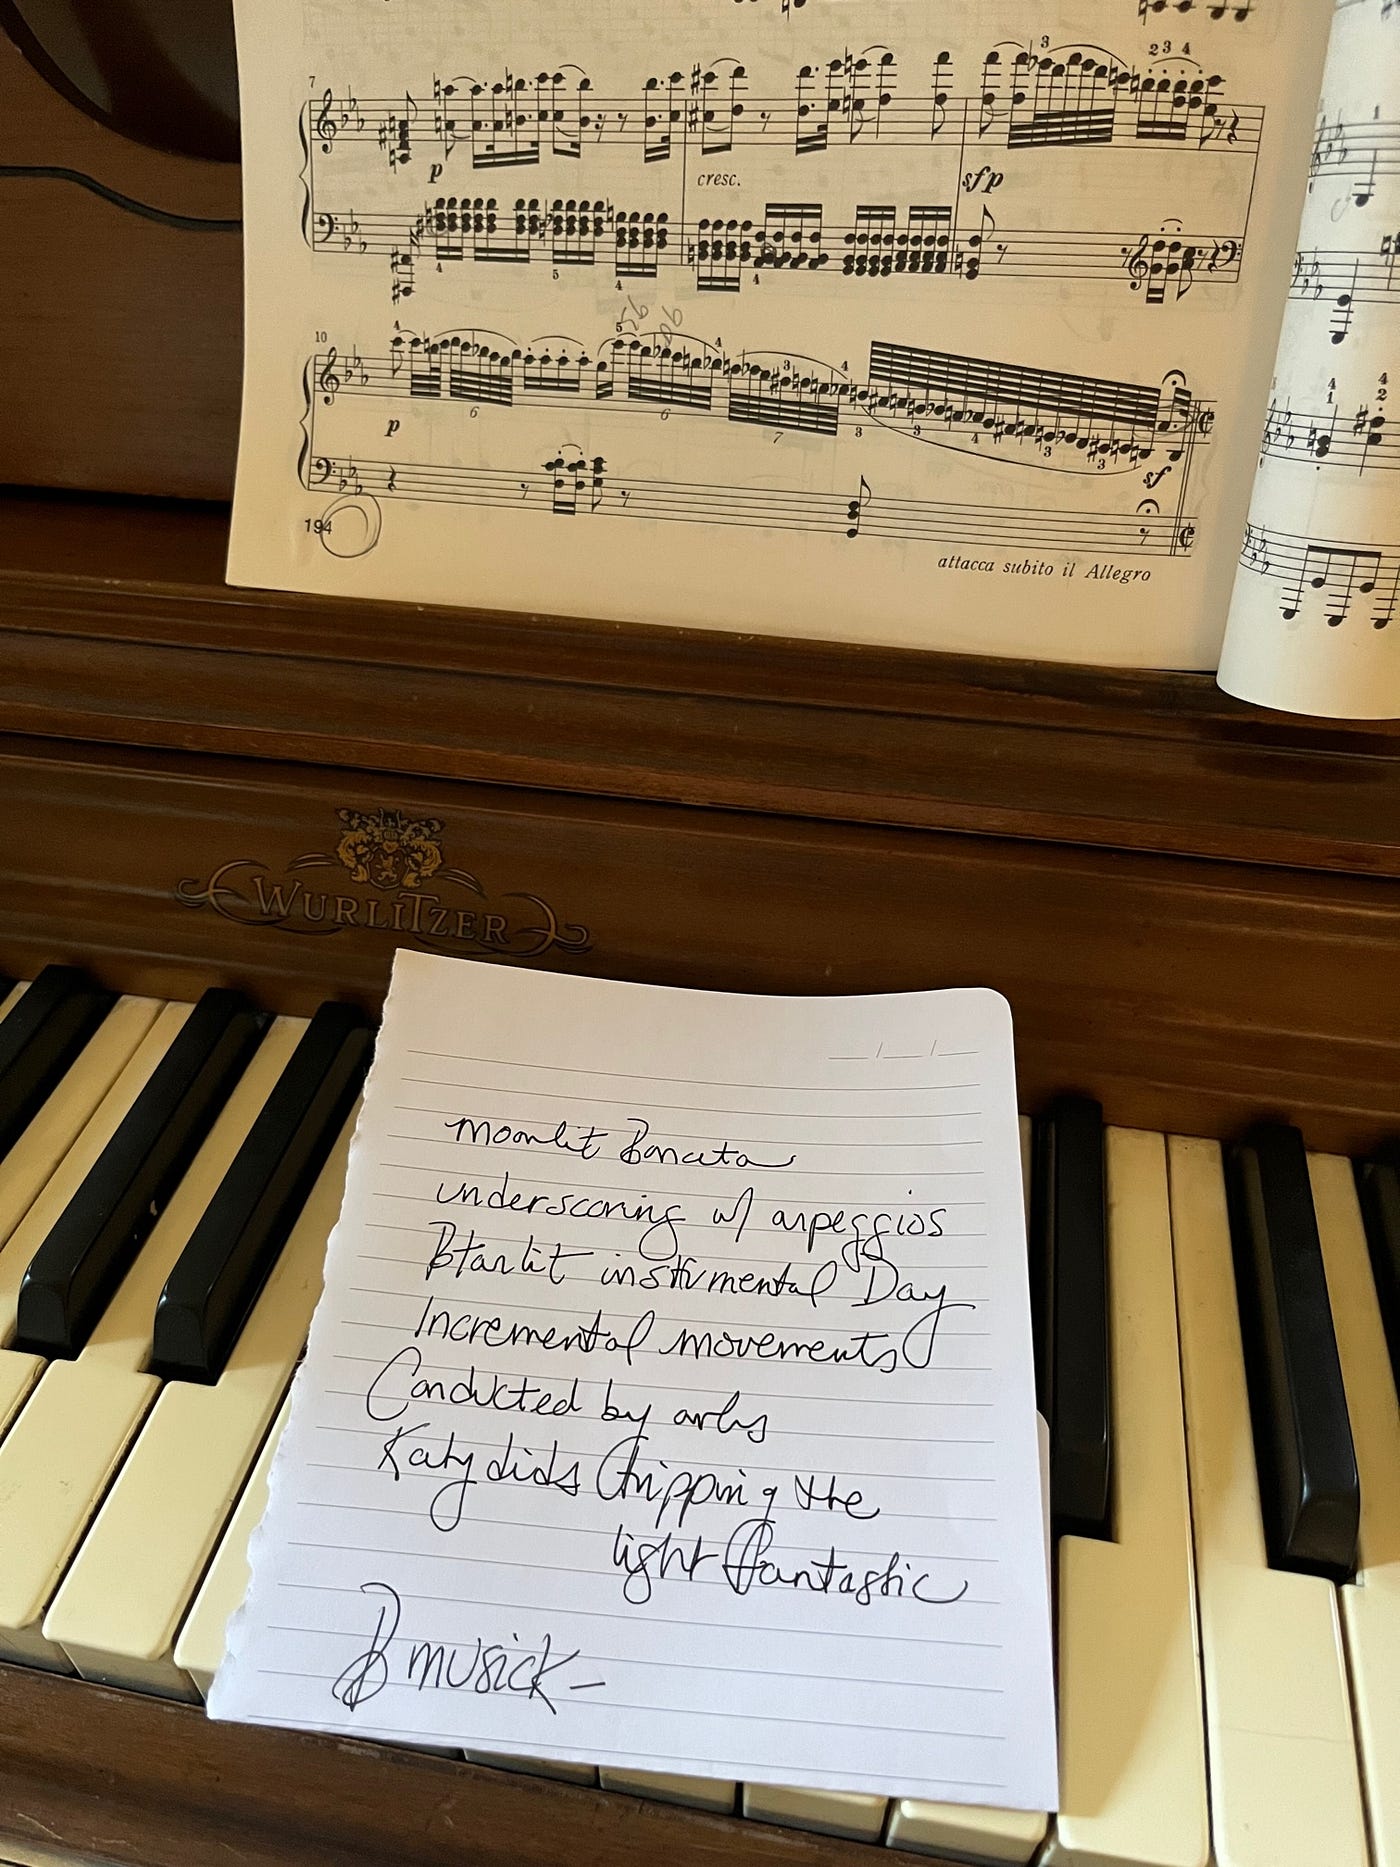 7
p cresc. sfp
10
p
sf
194
attacca subito il Allegro
WURLITZER
moonlit Sonata
underscoring w/ arpeggios
Starlit instrumental Day
Incremental movements
Conducted by
Katydids tripping the
light fantastic
B musick –